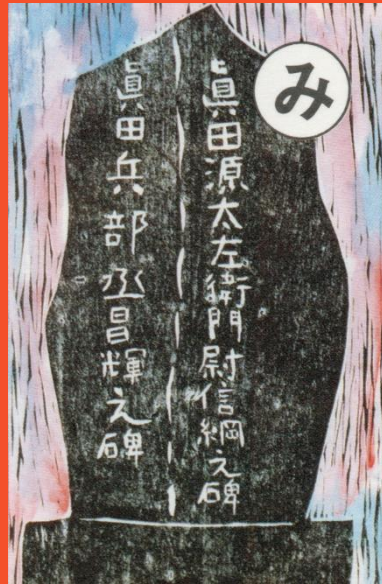 み
眞田源太左衛門尉信綱之碑
眞田兵部丞昌輝之碑